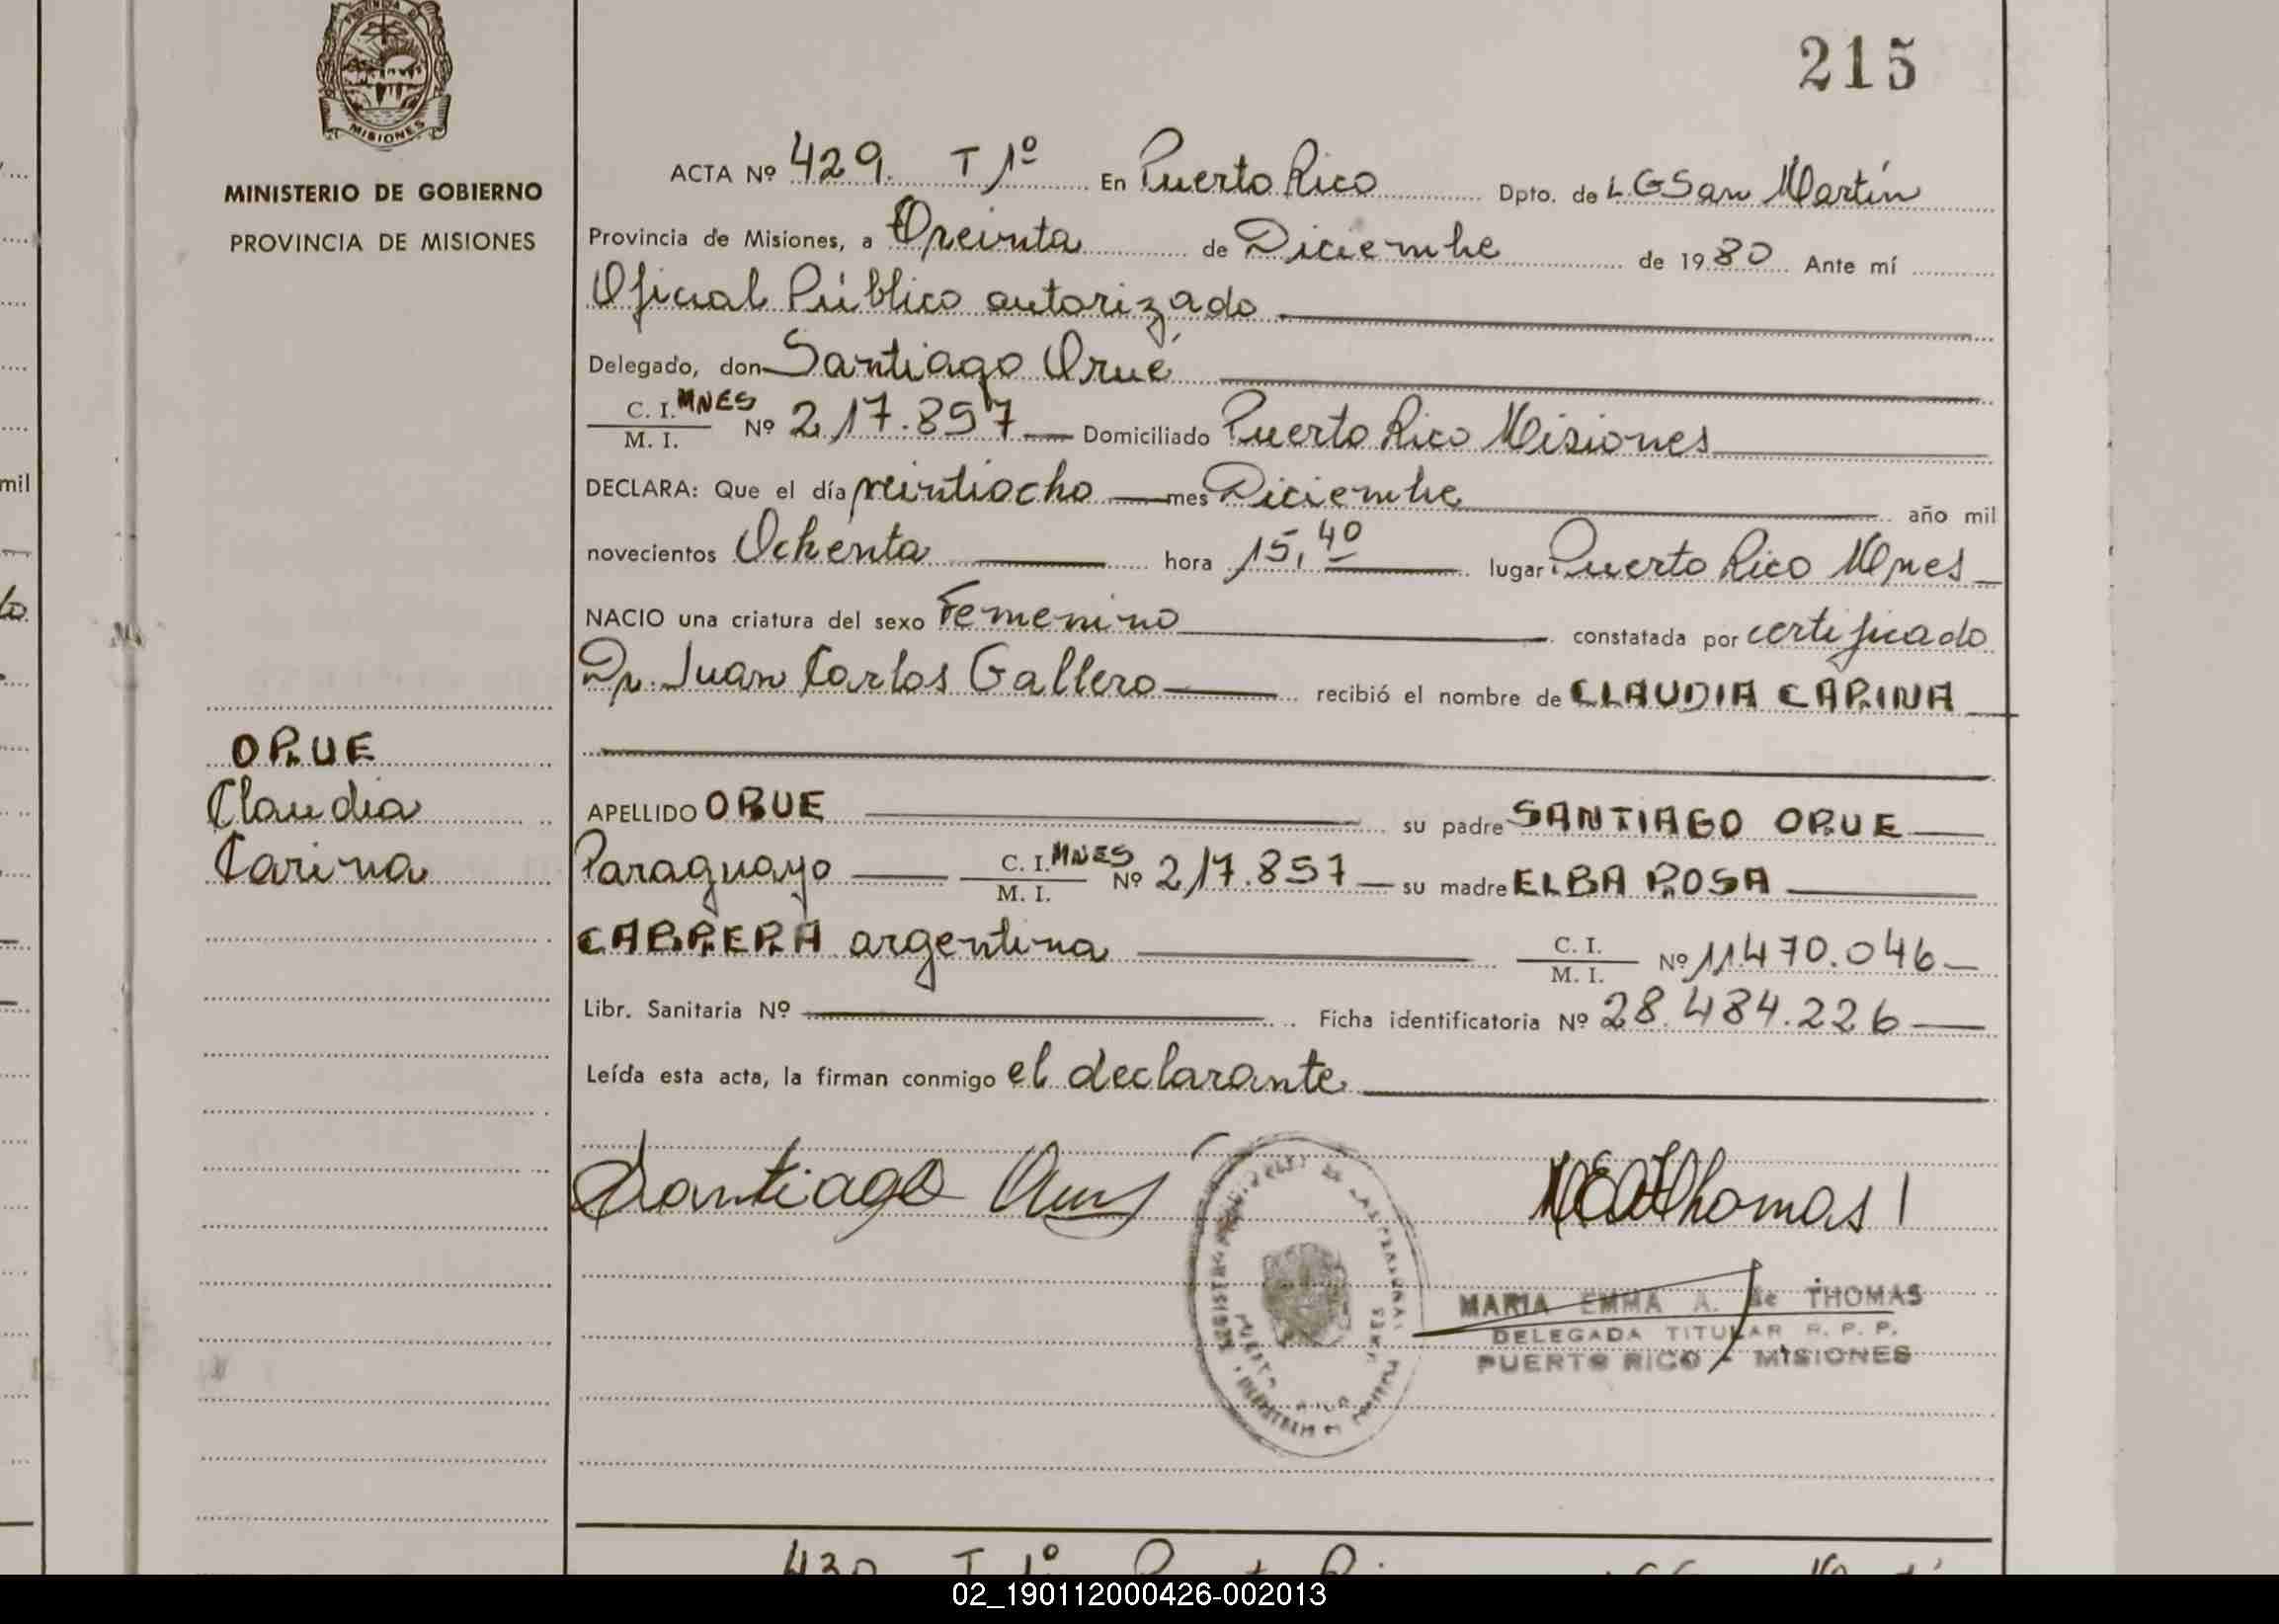 215
MISIONES
MINISTERIO DE GOBIERNO
PROVINCIA DE MISIONES
ORUE
Claudia
Carina
ACTA Nº 429. T 1º En Puerto Rico Dpto. de L G San Martín
Provincia de Misiones, a Treinta de Diciembre de 1980 Ante mí
Oficial Público autorizado
Delegado, don Santiago Orué
C. I. MNES
M. I. Nº 217.857 Domiciliado Puerto Rico Misiones
DECLARA: Que el día veintiocho mes Diciembre año mil
novecientos Ochenta hora 15,40 lugar Puerto Rico Mnes
NACIO una criatura del sexo Femenino constatada por certificado
Dr. Juan Carlos Gallero recibió el nombre de CLAUDIA CARINA
APELLIDO ORUE su padre SANTIAGO ORUE
Paraguayo C. I. MNES
M. I. Nº 217.857 su madre ELBA ROSA
CABRERA argentina C. I.
M. I. Nº 11470.046
Libr. Sanitaria Nº Ficha identificatoria Nº 28.484.226
Leída esta acta, la firman conmigo el declarante
Santiago Orué
Thomas
MARIA EMMA A. de THOMAS
DELEGADA TITULAR R. P. P.
PUERTO RICO - MISIONES
430 T 1º
mil
02_190112000426-002013